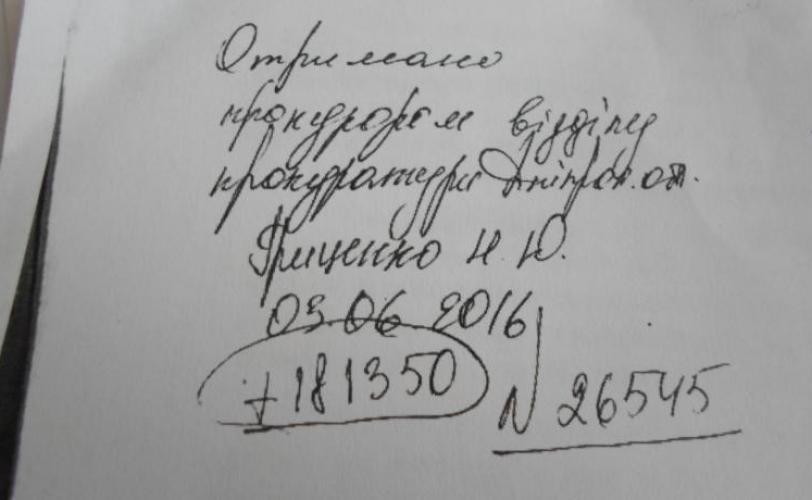 Отримано
прокурором відділу
прокуратури Дніпроп. обл.
Гриценко Н. Ю.
03 06 2016
+181350 N 26545